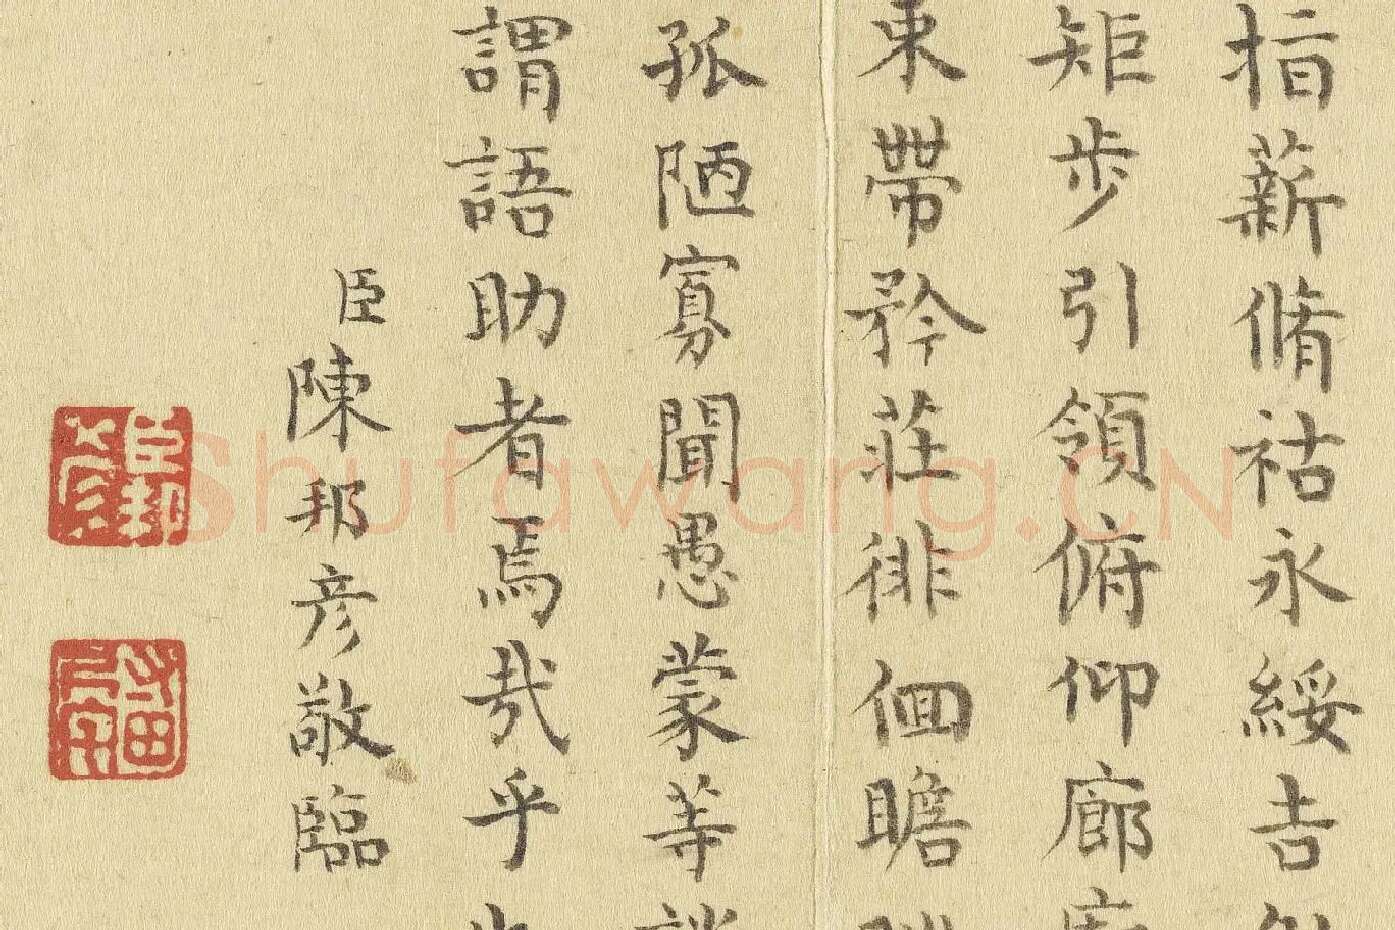 指薪脩祜永綏吉
矩步引領俯仰廊
束帶矜莊徘徊瞻
孤陋寡聞愚蒙等
謂語助者焉哉乎
臣陳邦彦敬臨
臣邦彦
Shufawang.CN